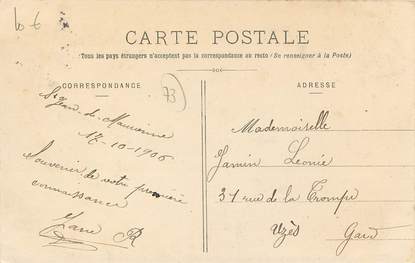 10 €
CARTE POSTALE
Tous les pays étrangers n'acceptent pas la correspondance au recto (Se renseigner à la Poste)
CORRESPONDANCE
73
ADRESSE
St Jean-de-Maurienne
17-10-1906
Souvenir de votre première
connaissance
R
Mademoiselle
Jamin Léonie
31 rue de la Trompe
Uzès
Gard